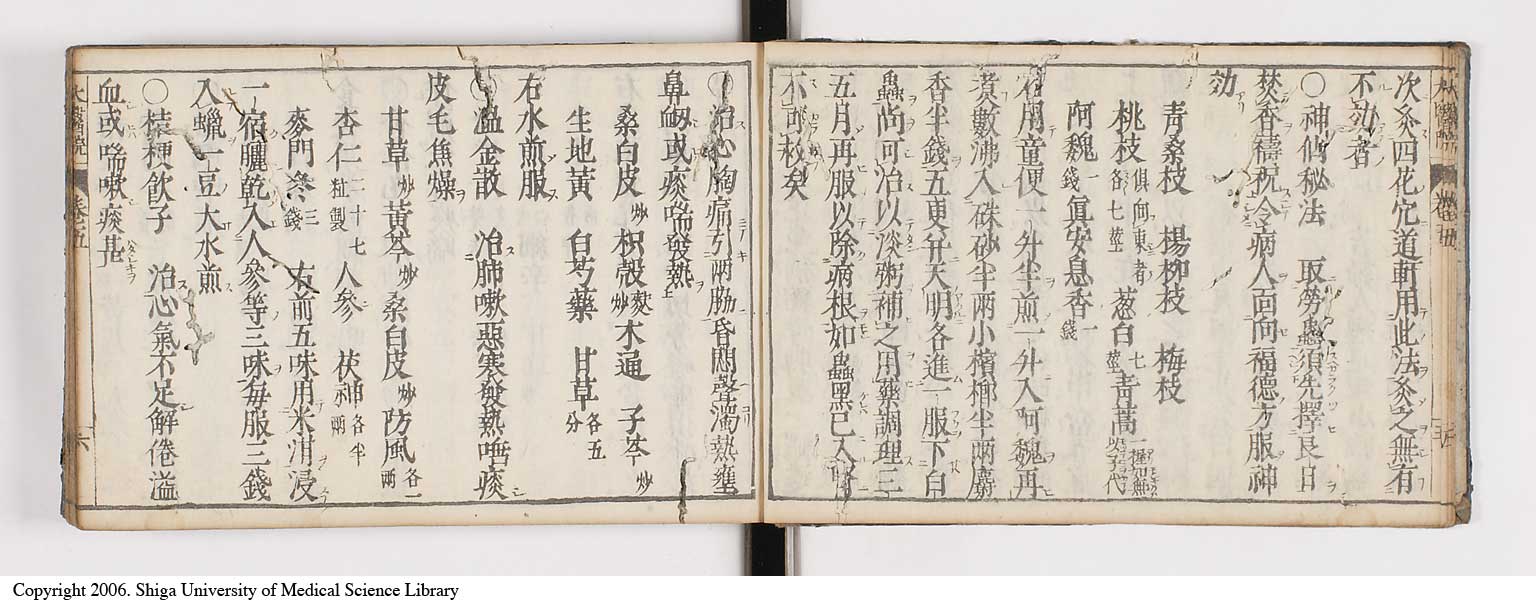 次灸四花穴道軒用此法灸之無有
不効者
〇神仙秘法　取勞蟲須先擇良日
焚香禱祝令病人面向福德方服神
効
青桑枝　楊柳枝　梅枝
桃枝各七莖俱向東者　葱白七莖　青蒿
阿魏一錢　眞安息香一錢
右用童便一升半煎一升入阿魏再
煮數沸入硃砂半兩小檳榔半兩麝
香半錢五更天明各進一服下白
蟲尚可治以淡粥補之用藥調理三
五月再服以除病根如蟲黑已入腎
不可救矣
〇治心胸痛引兩脇昏悶聲濁熱壅
鼻衂或痰喘發熱
桑白皮炒　枳殼麩炒　木通　子芩炒
生地黃　白芍藥　甘草各五分
右水煎服
〇溫金散　治肺嗽惡寒發熱唾痰
皮毛焦燥
甘草炒　黃芩炒　桑白皮炒　防風各一兩
杏仁二十七粒製　人參　茯神各半兩
麥門冬三錢　右前五味用米泔浸
一宿曬乾入人參等三味每服三錢
入蠟一豆大水煎
〇桔梗飲子　治心氣不足解倦溢
血或喘嗽痰甚
卷五
六
Copyright 2006. Shiga University of Medical Science Library